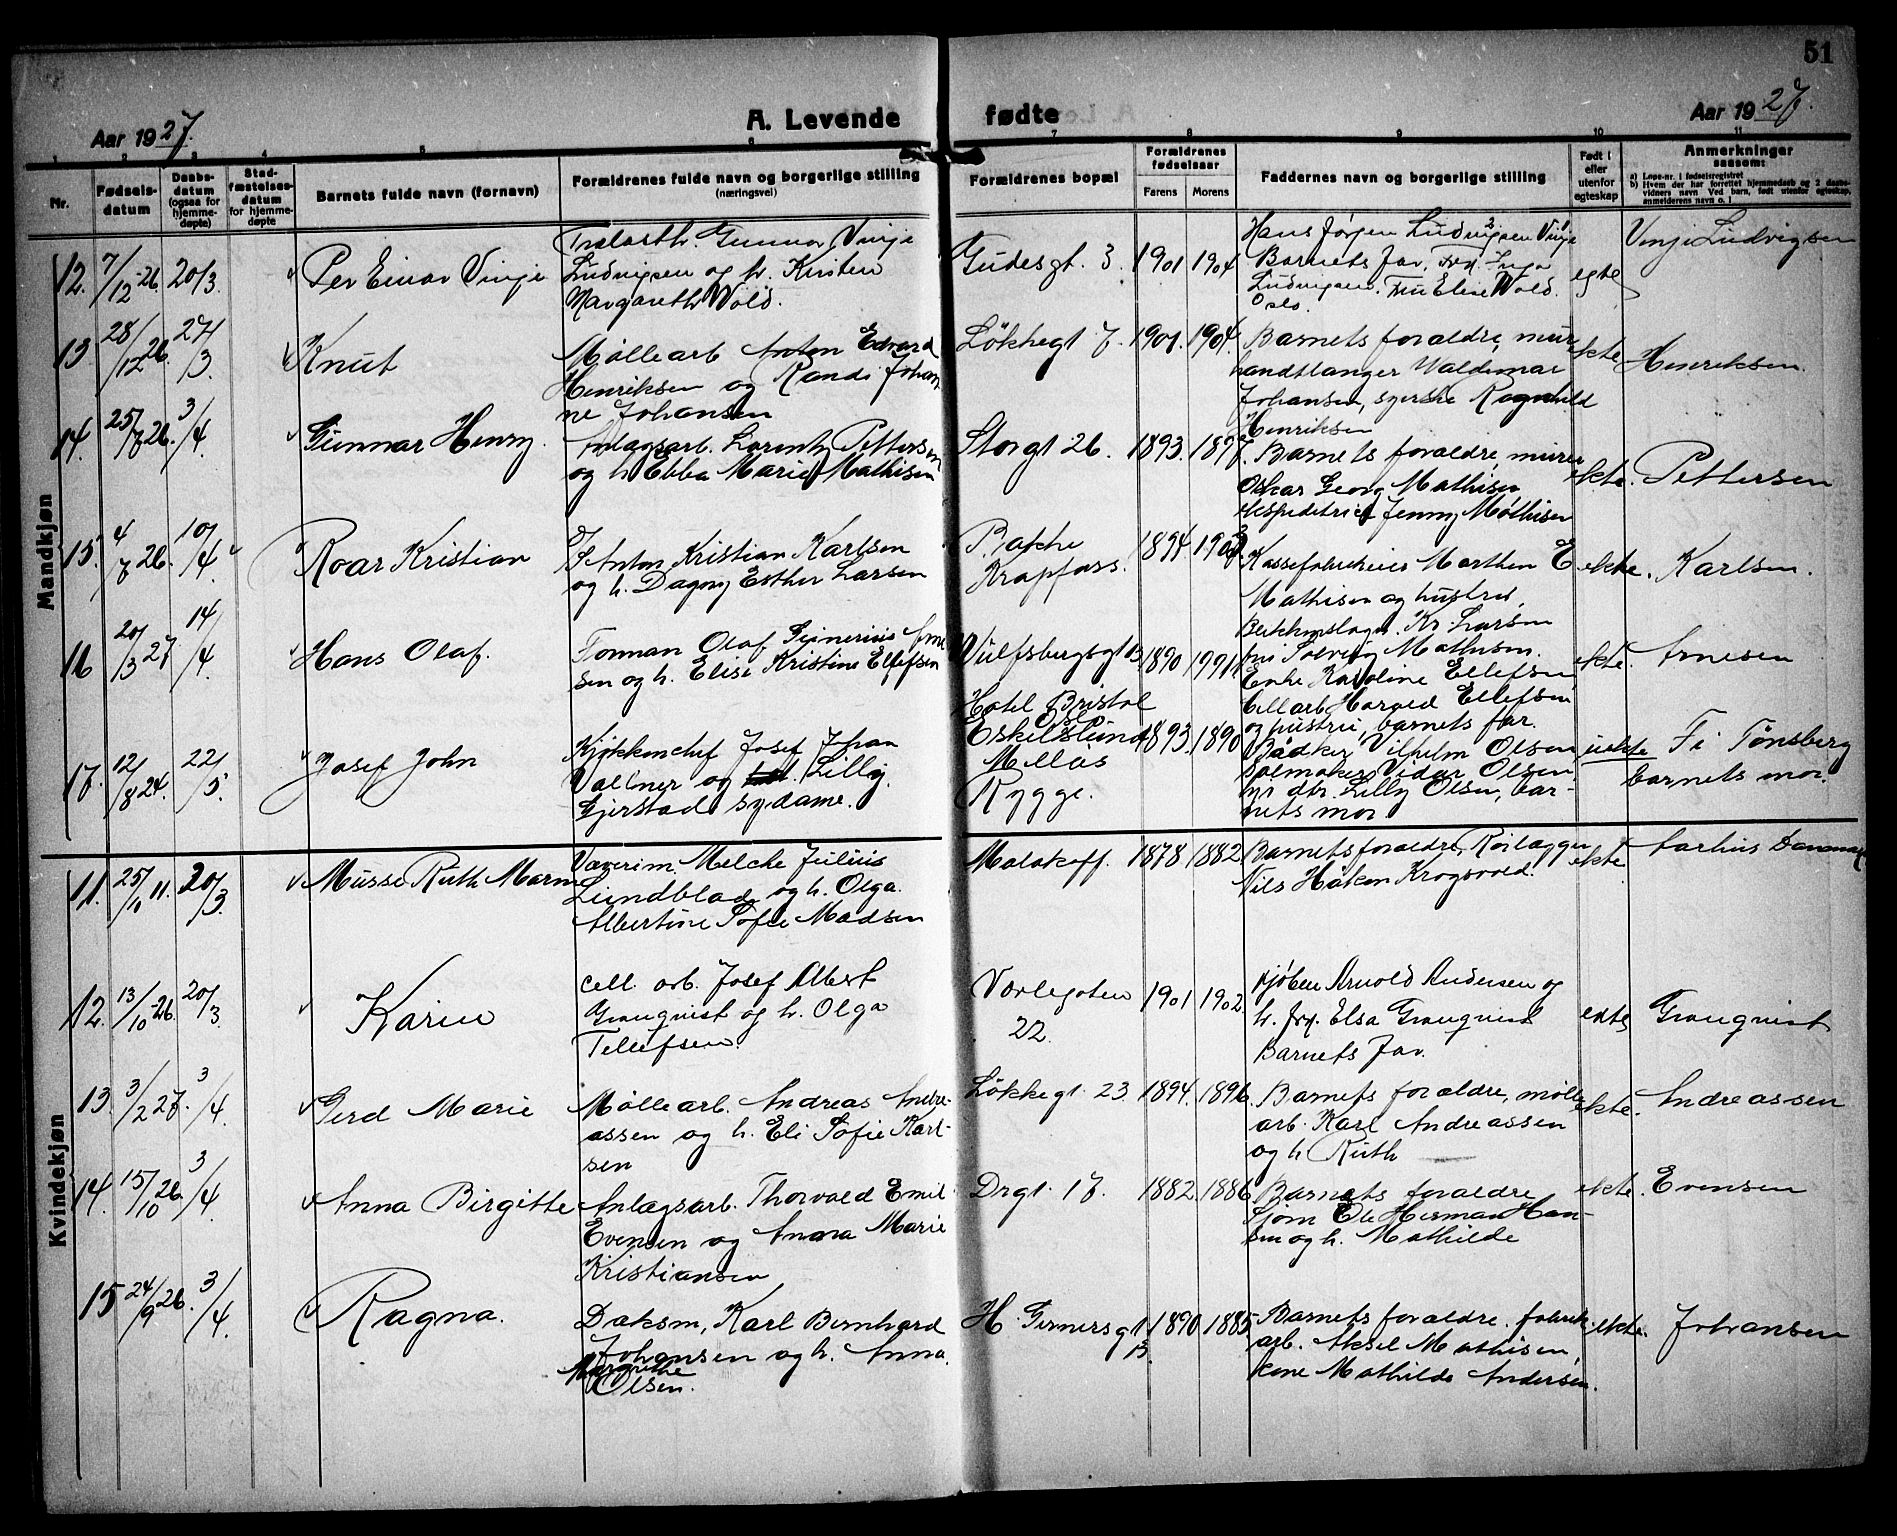 51
Aar 1927.
A. Levende fødte
Aar 1927.
1 2 3 4 5 6 7 8 9 10 11
Nr.
Fødsels-
datum
Daabs-
datum
(ogsaa for
hjemme-
døpte)
Stad-
fæstelses-
datum
for hjemme-
døpte
Barnets fulde navn (fornavn)
Forældrenes fulde navn og borgerlige stilling
(næringsvei)
Forældrenes bopæl
Forældrenes
fødselsaar
Farens Morens
Faddernes navn og borgerlige stilling
Født i
eller
utenfor
egteskap
Anmerkninger
saasom:
a) Løpe-nr. i fødselsregistret
b) Hvem der har forrettet hjemmedaab og 2 daabs-
vidners navn Ved barn, født utenfor egteskap,
anmelderens navn o. l
Mandkjøn
12. 7/12-26. 20/3. Per Einar Vinje
Gunnar Vinje
Ludvigsen og h. Kirsten
Margareth Wold.
Gudesgt. 3. 1901 1904
Hans Jørgen Ludvigsen Vinje
Barnets far, Frk. Inga
Ludvigsen. Fru Elise Wold.
Oslo.
egte
Vinje Ludvigsen
13 28/12 26. 27/3 Knut
Møllearb Anton Edvard
Henriksen og Randi Johan-
ne Johansen
Løkkegt 7. 1901. 1904.
Barnets forældre, mur
handtlanger Waldemar
Johansen, syerske Ragnhild
Henriksen
ekte
Henriksen.
14. 25/7 26. 3/4. Gunnar Henry.
Anlagsarb. Lorentz Pettersen
og h. Ebba Marie Mathisen
Storgt 26. 1893. 1897.
Barnets forældre, murer
Oskar Georg Mathisen
ekspeditrice Jenny Mathisen
ekte.
Pettersen
15. 4/7 26. 10/4. Roar Kristian
Anton Kristian Karlsen
og h. Dagny Esther Larsen
Bakke
Krapfoss. 1894.
Kassefabrikeier Marthin E.
Mathisen og hustru,
Blikkenslager Kr. Larsen
fru Solveig Mathisen.
ekte.
Karlsen.
16 20/3 27 14/4 Hans Olaf.
Forman Olaf Arne-
sen og h. Elise Kristine Ellefsen
Wulfsbergsgt 13 1890 1991
Enke Karoline Ellefsen
Cellarb. Harald Ellefsen
og hustru, barnets far.
ekte.
Arnesen
17. 12/8 24. 22/5. Josef John
Kjøkkenchef Josef Johan
Vallner og Lilly
Gjerstad sydame.
Hotel Bristol
Oslo
Eskilslund
Mellös
Rygge.
1893. 1890
Bødker Vilhelm Olsen
salmaker Vidar Olsen,
Lilly Olsen, bar-
nets mor
uekte
Fi Tønsberg
barnets mor.
Kvindekjøn
11. 25/11 11. 20/3. Musse Ruth Marn
Væverim. Melche Julius
Lundblad og h. Olga
Albertine Sofie Madsen
Malakoff. 1878 1882
Barnets forældre, Rørlægger
Nils Håken Krogsvold.
ekte.
Aarhus Danmark
12. 13/10-26. 20/3. Karin
Cell. arb. Josef Albert
Granqvist og h. Olga
Tellefsen.
Varlegaten
22. 1901 1902
kjøbm Arnold Andersen og
h. Frk. Elsa Granqvist
Barnets far.
ekte
Granqvist
13. 3/2 27. 3/4. Gerd Marie
Møllearb. Andreas Andre-
assen og h. Eli Sofie Karl-
sen
Løkkegt. 23. 1894. 1896.
Barnets forældre, mølle
arb. Karl Andreassen
og h Ruth
ekte.
Andreassen
14. 15/10 26. 3/4. Anna Birgitte
Anlægsarb. Thorvald Emil
Evensen og Anna Marie
Kristiansen
Drgt. 17. 1882. 1886
Barnets forældre
Sjøm Ole Herman Han-
sen og h. Mathilde
ekte.
Evensen
15 24/9 26. 3/4. Ragna.
Daksm, Karl Bernhard
Johansen og h. Anna
Margrethe
Olsen.
H. Gernersgt.
13. 1890 1885
Barnets forældre. fabrik
arb. Aksel Mathisen,
kone Mathilde Andersen.
ekte.
Johansen